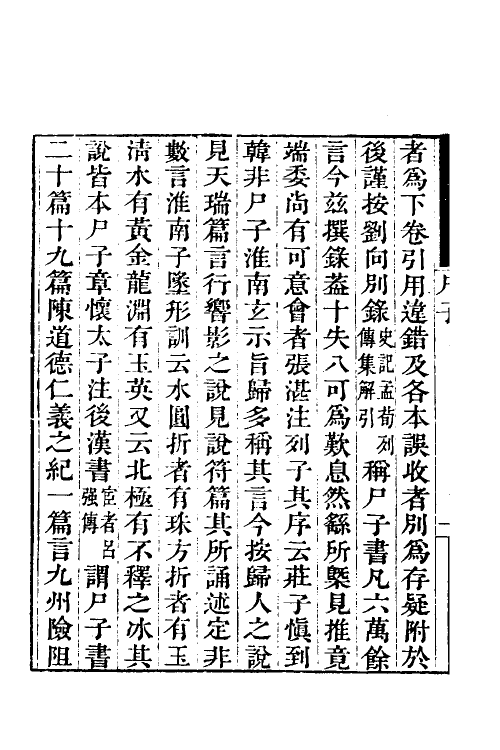 者爲下卷引用違錯及各本誤收者別爲存疑附於
後謹按劉向別錄史記孟荀列傳集解引稱尸子書凡六萬餘
言今茲撰錄葢十失八可爲歎息然繇所槩見推竟
端委尚有可意會者張湛注列子其序云莊子愼到
韓非尸子淮南玄示旨歸多稱其言今按歸人之說
見天瑞篇言行響影之說見說符篇其所誦述定非
數言淮南子墜形訓云水圓折者有珠方折者有玉
淸水有黃金龍淵有玉英又云北極有不釋之冰其
說皆本尸子章懷太子注後漢書宦者呂强傳謂尸子書
二十篇十九篇陳道德仁義之紀一篇言九州險阻